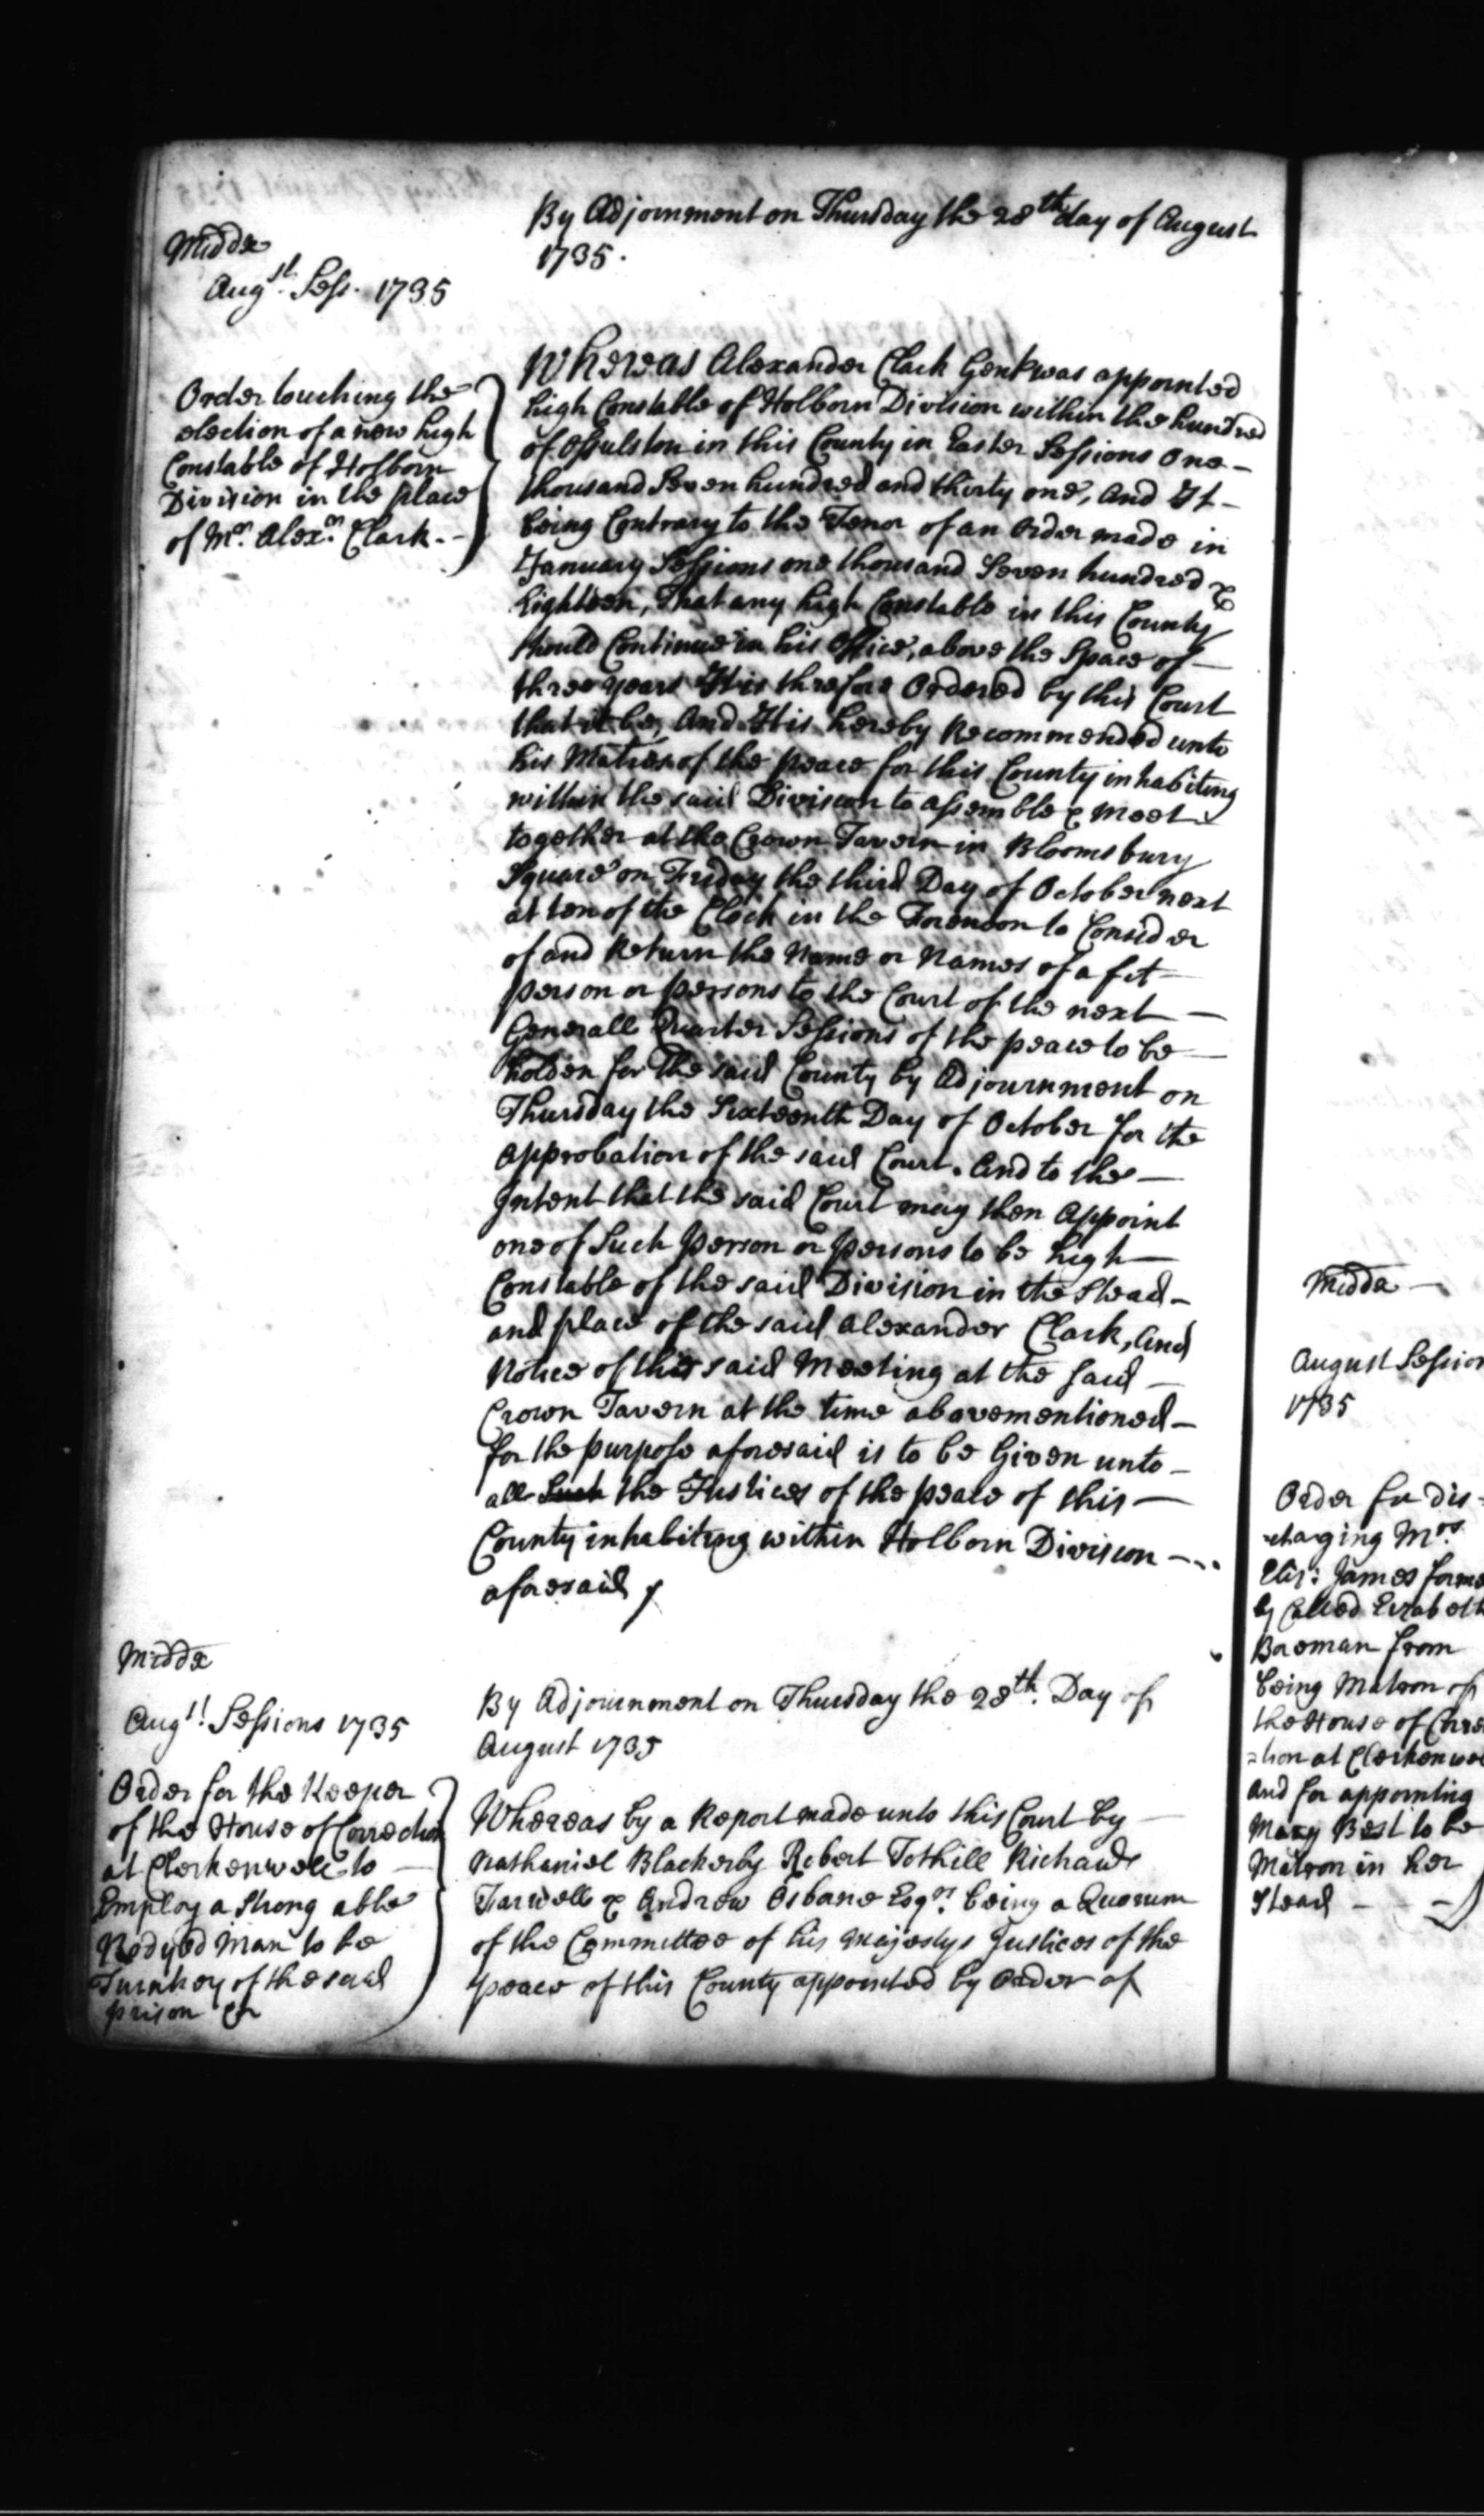 Middx
Augst. Sess. 1735
By Adjornment on Thursday the 28th day of August
1735.
Order touching the
election of a new high
Constable of Holborn
Division in the place
of Mr. Alexr. Clark. -
Whereas Alexander Clark Gent was appointed
high Constable of Holborn Division within the hundred
of Ossulston in this County in Easter Sessions One -
thousand Seven hundred and thirty one, And It -
being Contrary to the Tenor of an Order made in
January Sessions one thousand Seven hundred &
Eighteen, That any high Constable in this County
should Continue in his Office, above the Space of -
three years It is threfore Ordered by this Court
that it be, And It is hereby Recommended unto
his Maties of the peace for this County inhabiting
within the said Division to assemble & meet
together at the Crown Tavern in Bloomsbury
Square on Friday the third Day of October next
at ten of the Clock in the Forenoon to Consider
of and Return the Name or Names of a fit -
person or persons to the Court of the next -
Generall Quarter Sessions of the peace to be -
holden for the said County by Adjournment on
Thursday the Sixteenth Day of October for the
Approbation of the said Court. And to the -
Intent that the said Court may then Appoint
one of Such Person or Persons to be high -
Constable of the said Division in the Stead -
and place of the said Alexander Clark, And
Notice of this said Meeting at the said -
Crown Tavern at the time abovementioned -
for the purpose aforesaid is to be Given unto -
all Such the Justices of the peace of this -
County inhabiting within Holborn Division - ..
aforesaid
Middx
Augst. Sessions 1735
By Adjournment on Thursday the 28th. Day of
August 1735
Order for the Keeper
of the House of Correction
at Clerkenwell to -
Employ a Strong able
Bodyed Man to be
Turnkey of the said
prison &c
Whereas by a Report made unto this Court by -
Nathaniel Blackerby Robert Tothill Richard
Farwell & Andrew Osbane Esqrs. being a Quorum
of the Committee of his Majestys Justices of the
peace of this County appointed by Order of
Middx -
August Session
1735
Order for dis-
charging Mrs
Eliz: James forme
ly Called Elizabeth
Boeman from
being Matron of
the House of Corre
=tion at Clerkenwe
and for appointing
Mary Best to be
Matron in her
Stead - - -